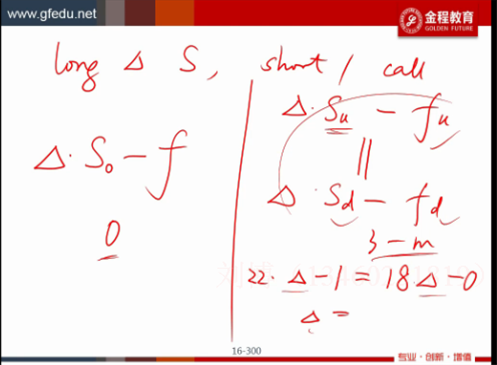 www.gfedu.net
金程教育
GOLDEN FUTURE
long Δ S, short 1 call
Δ·S₀ - f
0
Δ·Su - fu
||
Δ·Sd - fd
3-m
22·Δ-1 = 18·Δ-0
Δ =
16-300
专业·创新·增值